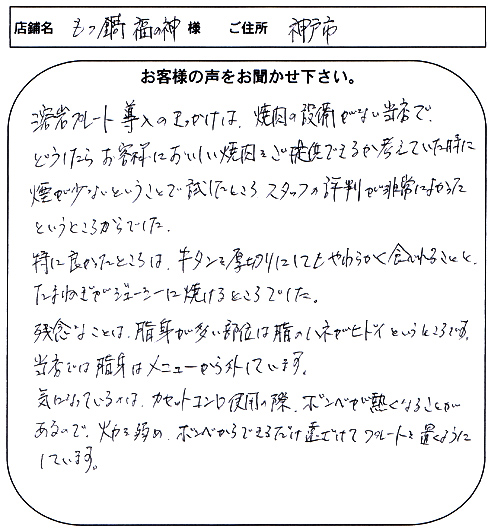 店舗名 もつ鍋 福の神 様 ご住所 神戸市
お客様の声をお聞かせ下さい。
溶岩プレート導入のきっかけは、焼肉の設備がない当店で、
どうしたらお客様においしい焼肉をご提供できるか考えていた時に
煙が少ないということで試したところ スタッフの評判が非常によかった
というところからでした。
特に良かったところは、牛タンを厚切りにしてもやわらかく食べれることと、
たまねぎがジューシーに焼けるところでした。
残念なことは、脂身が多い部位は脂のハネがヒドイというところです。
当店では脂身はメニューから外しています。
気になっているのは、カセットコンロ使用の際、ボンベが熱くなることが
あるので、火力を弱め、ボンベからできるだけ遠ざけてプレートを置くように
しています。